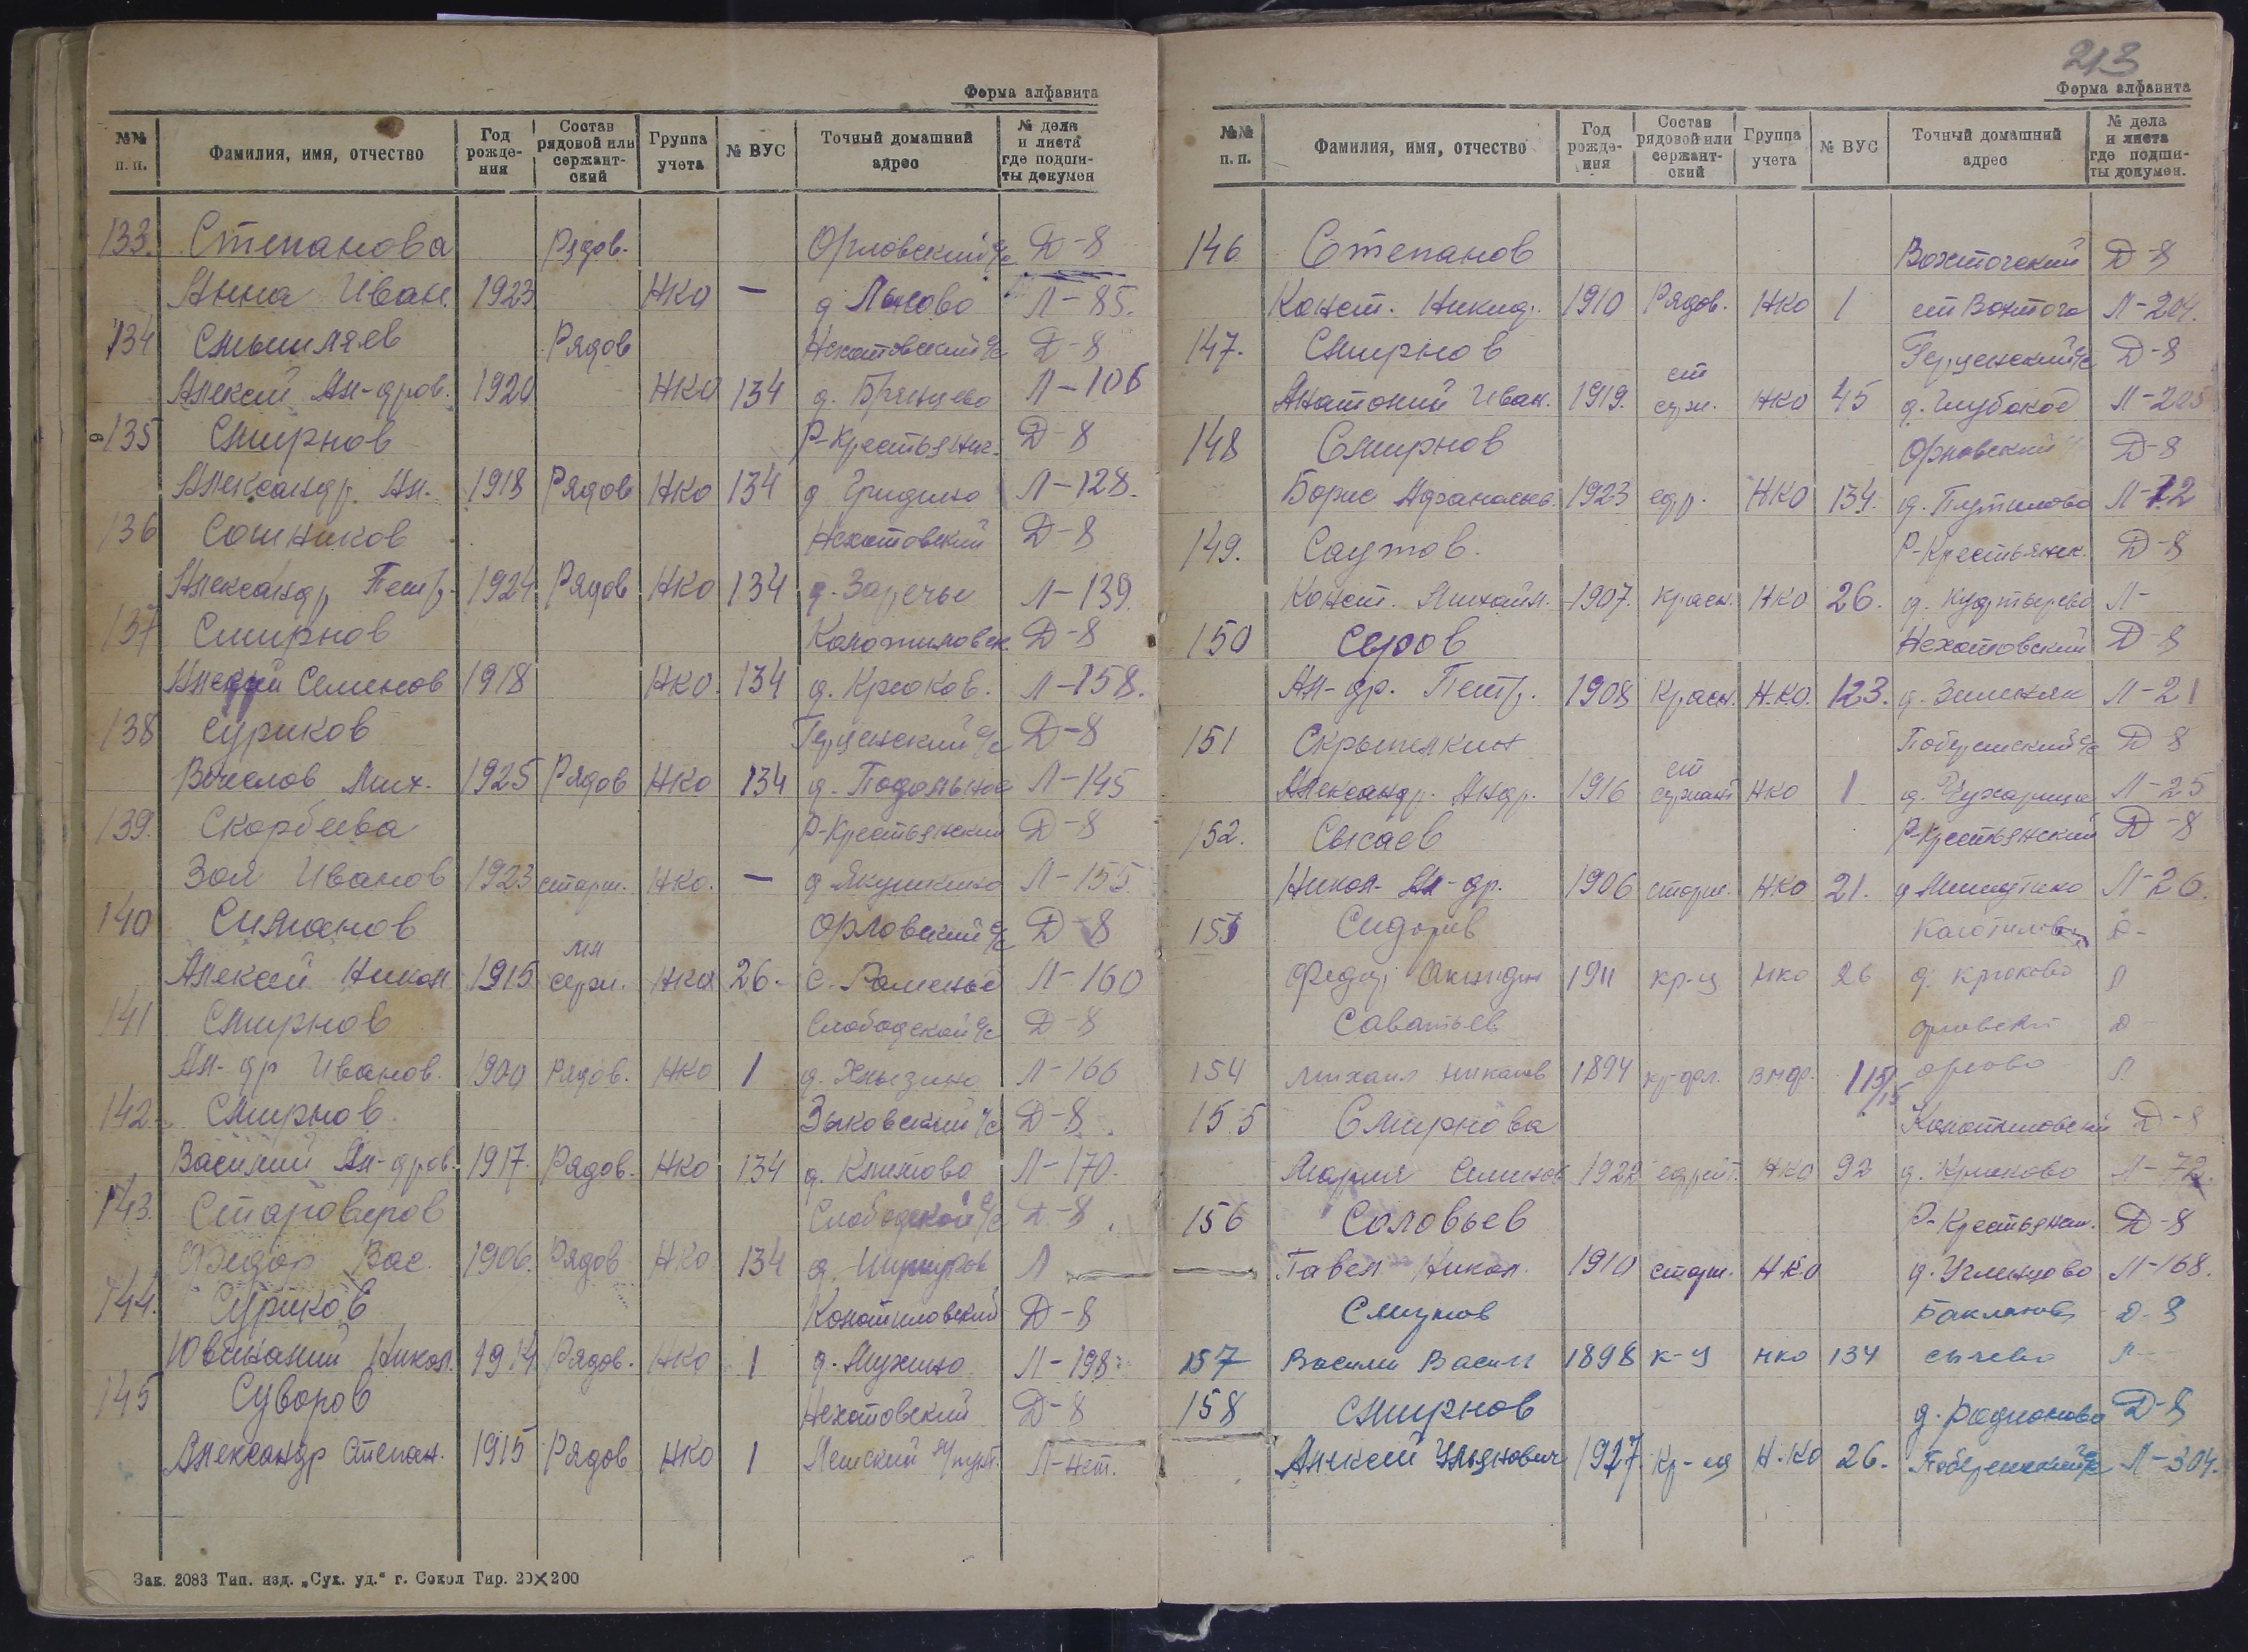 Форма алфавита
№№ п. п. Фамилия, имя, отчество Год рождения Состав рядовой или сержантский Группа учета № ВУС Точный домашний адрес № дела и листа где подшиты докумен
133. Степанова Рядов. Орловский с/с Д-8
Анна Иван. 1923 НКО — д Лысово Л-85.
134 Смышляев Рядов Нехотовский с/с Д-8
Алексей Ал-дров. 1920 НКО 134 д. Брянцево Л-106
135 Смирнов Р-Крестьянск. Д-8
Александр. Ал. 1918 Рядов НКО 134 д Гридино Л-128.
136 Сошников Нехотовский Д-8
Александр Петр. 1924 Рядов НКО 134 д. Заречье Л-139.
137 Смирнов Колотиловск. Д-8
Семенов 1918 НКО. 134 д. Крюков. Л-158.
138 Суриков Герценский с/с Д-8
Вячеслов Мих. 1925 Рядов НКО 134 д. Подольное Л-145
139. Скорбеева Р-Крестьянский Д-8
Зоя Иванов 1923 старш. НКО. — д Якушкино Л-155.
140 Симанов Орловский с/с Д-8
Алексей Никол 1915 мл серж. НКО 26. с. Раменье Л-160
141 Смирнов Слободской с/с Д-8
Ал-др Иванов. 1900 Рядов. НКО 1 д. Хлызино Л-166
142. Смирнов. Зыковский с/с Д-8
Василий Ал-дров. 1917. Рядов. НКО 134 д. Климово Л-170.
143. Староверов Слободской с/с Д-8
Федор Вас. 1906. Рядов НКО 134 д. Л
144. Суриков Колотиловский Д-8
Ювиналий Никол. 1914 Рядов. НКО 1 д. Мухино Л-198
145 Суворов Нехотовский Д-8
Александр Степан. 1915 Рядов НКО 1 Лежский Л-нет.
Зак. 2083 Тип. изд. „Сух. уд.“ г. Сокол Тир. 20×200
213
Форма алфавита
№№ п. п. Фамилия, имя, отчество Год рождения Состав рядовой или сержантский Группа учета № ВУС Точный домашний адрес № дела и листа где подшиты докумен.
146 Степанов Вохтогский Д-8
Конст. Никид. 1910 Рядов. НКО 1 ст Вохтога Л-204.
147. Смирнов Герценский с/с Д-8
Анатолий Иван. 1919. ст серж. НКО 45 д. Глубокое Л-205
148 Смирнов Орловский Д-8
Борис Афанасьев. 1923 ефр. НКО 134. д. Путилово Л-12
149. Саутов. Р-Крестьянск. Д-8
Конст. Михайл. 1907. красн. НКО 26. Л-
150 Серов Нехотовский Д-8
Ал-др. Петр. 1908 Красн. Н.КО. 123. д. Зимняк Л-21
151 Скрыпелкин с/с Д-8
Александр. Андр. 1916 ст сержант НКО 1 д. Чухарица Л-25
152. Сысаев Р-Крестьянский Д-8
Никол. Ал-др. 1906 старш. НКО 21. Л-26.
153 Сидоров Д-
Федор 1911 кр-ц НКО 26 д. крюково Л
Саватьев орловский Д-
154 Михаил Николаев 1894 115/15 орлово Л
155 Смирнова Колотиловский Д-8
Мария Семенов 1922 ефрейт. НКО 92 д. Крюково Л-72.
156 Соловьев Р-Крестьянск. Д-8
Павел Никол. 1910 старш. НКО д. Угленцово Л-168.
Смирнов Бакланов Д-8
157 Василий Васил 1898 к-ц НКО 134 сычево Л-
158 Смирнов д. Родионово Д-8
Алексей Ульянович 1927 Кр-ец Н.КО 26. с/с Л-304.